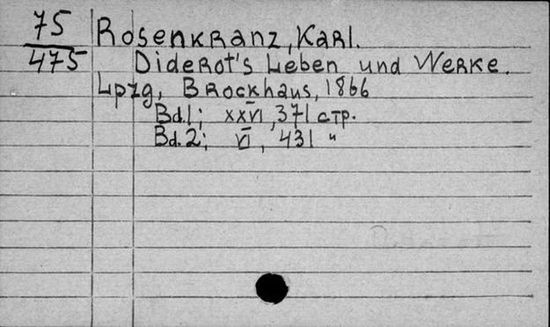 75
475
Rosenkranz, Karl.
Diderot's Leben und Werke.
Lpzg, Brockhaus, 1866
Bd.1; XXVI, 371 стр.
Bd.2; VI, 431 "